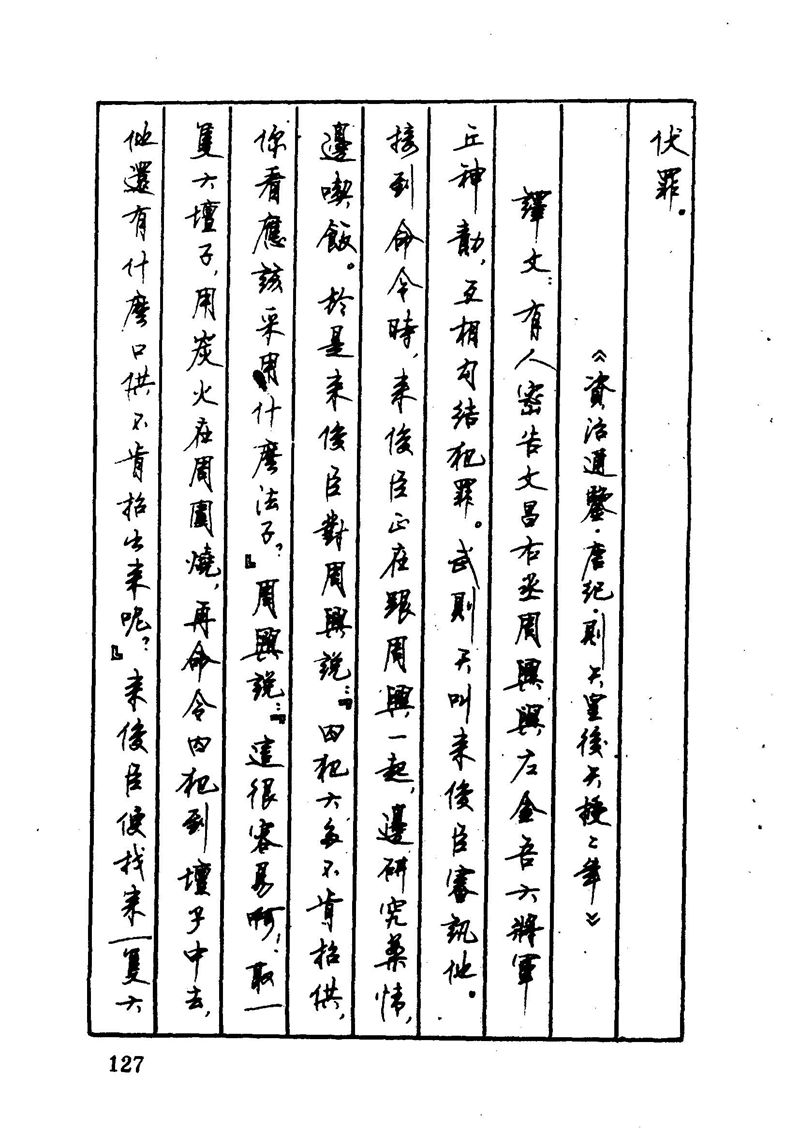 伏罪。
《資治通鑒·唐紀·則天皇後天授二年》
譯文：有人密告文昌右丞周興與左金吾大將軍
丘神勣，互相勾結犯罪。武則天叫来俊臣審訊他。
接到命令時，来俊臣正在跟周興一起，邊研究案情，
邊喫飯。於是来俊臣對周興説：『囚犯大多不肯招供，
你看應該采用什麽法子？』周興説：『這很容易啊！取一
隻大壇子，用炭火在周圍燒，再命令囚犯到壇子中去，
他還有什麽口供不肯招出来呢？』来俊臣便找来一隻大
127